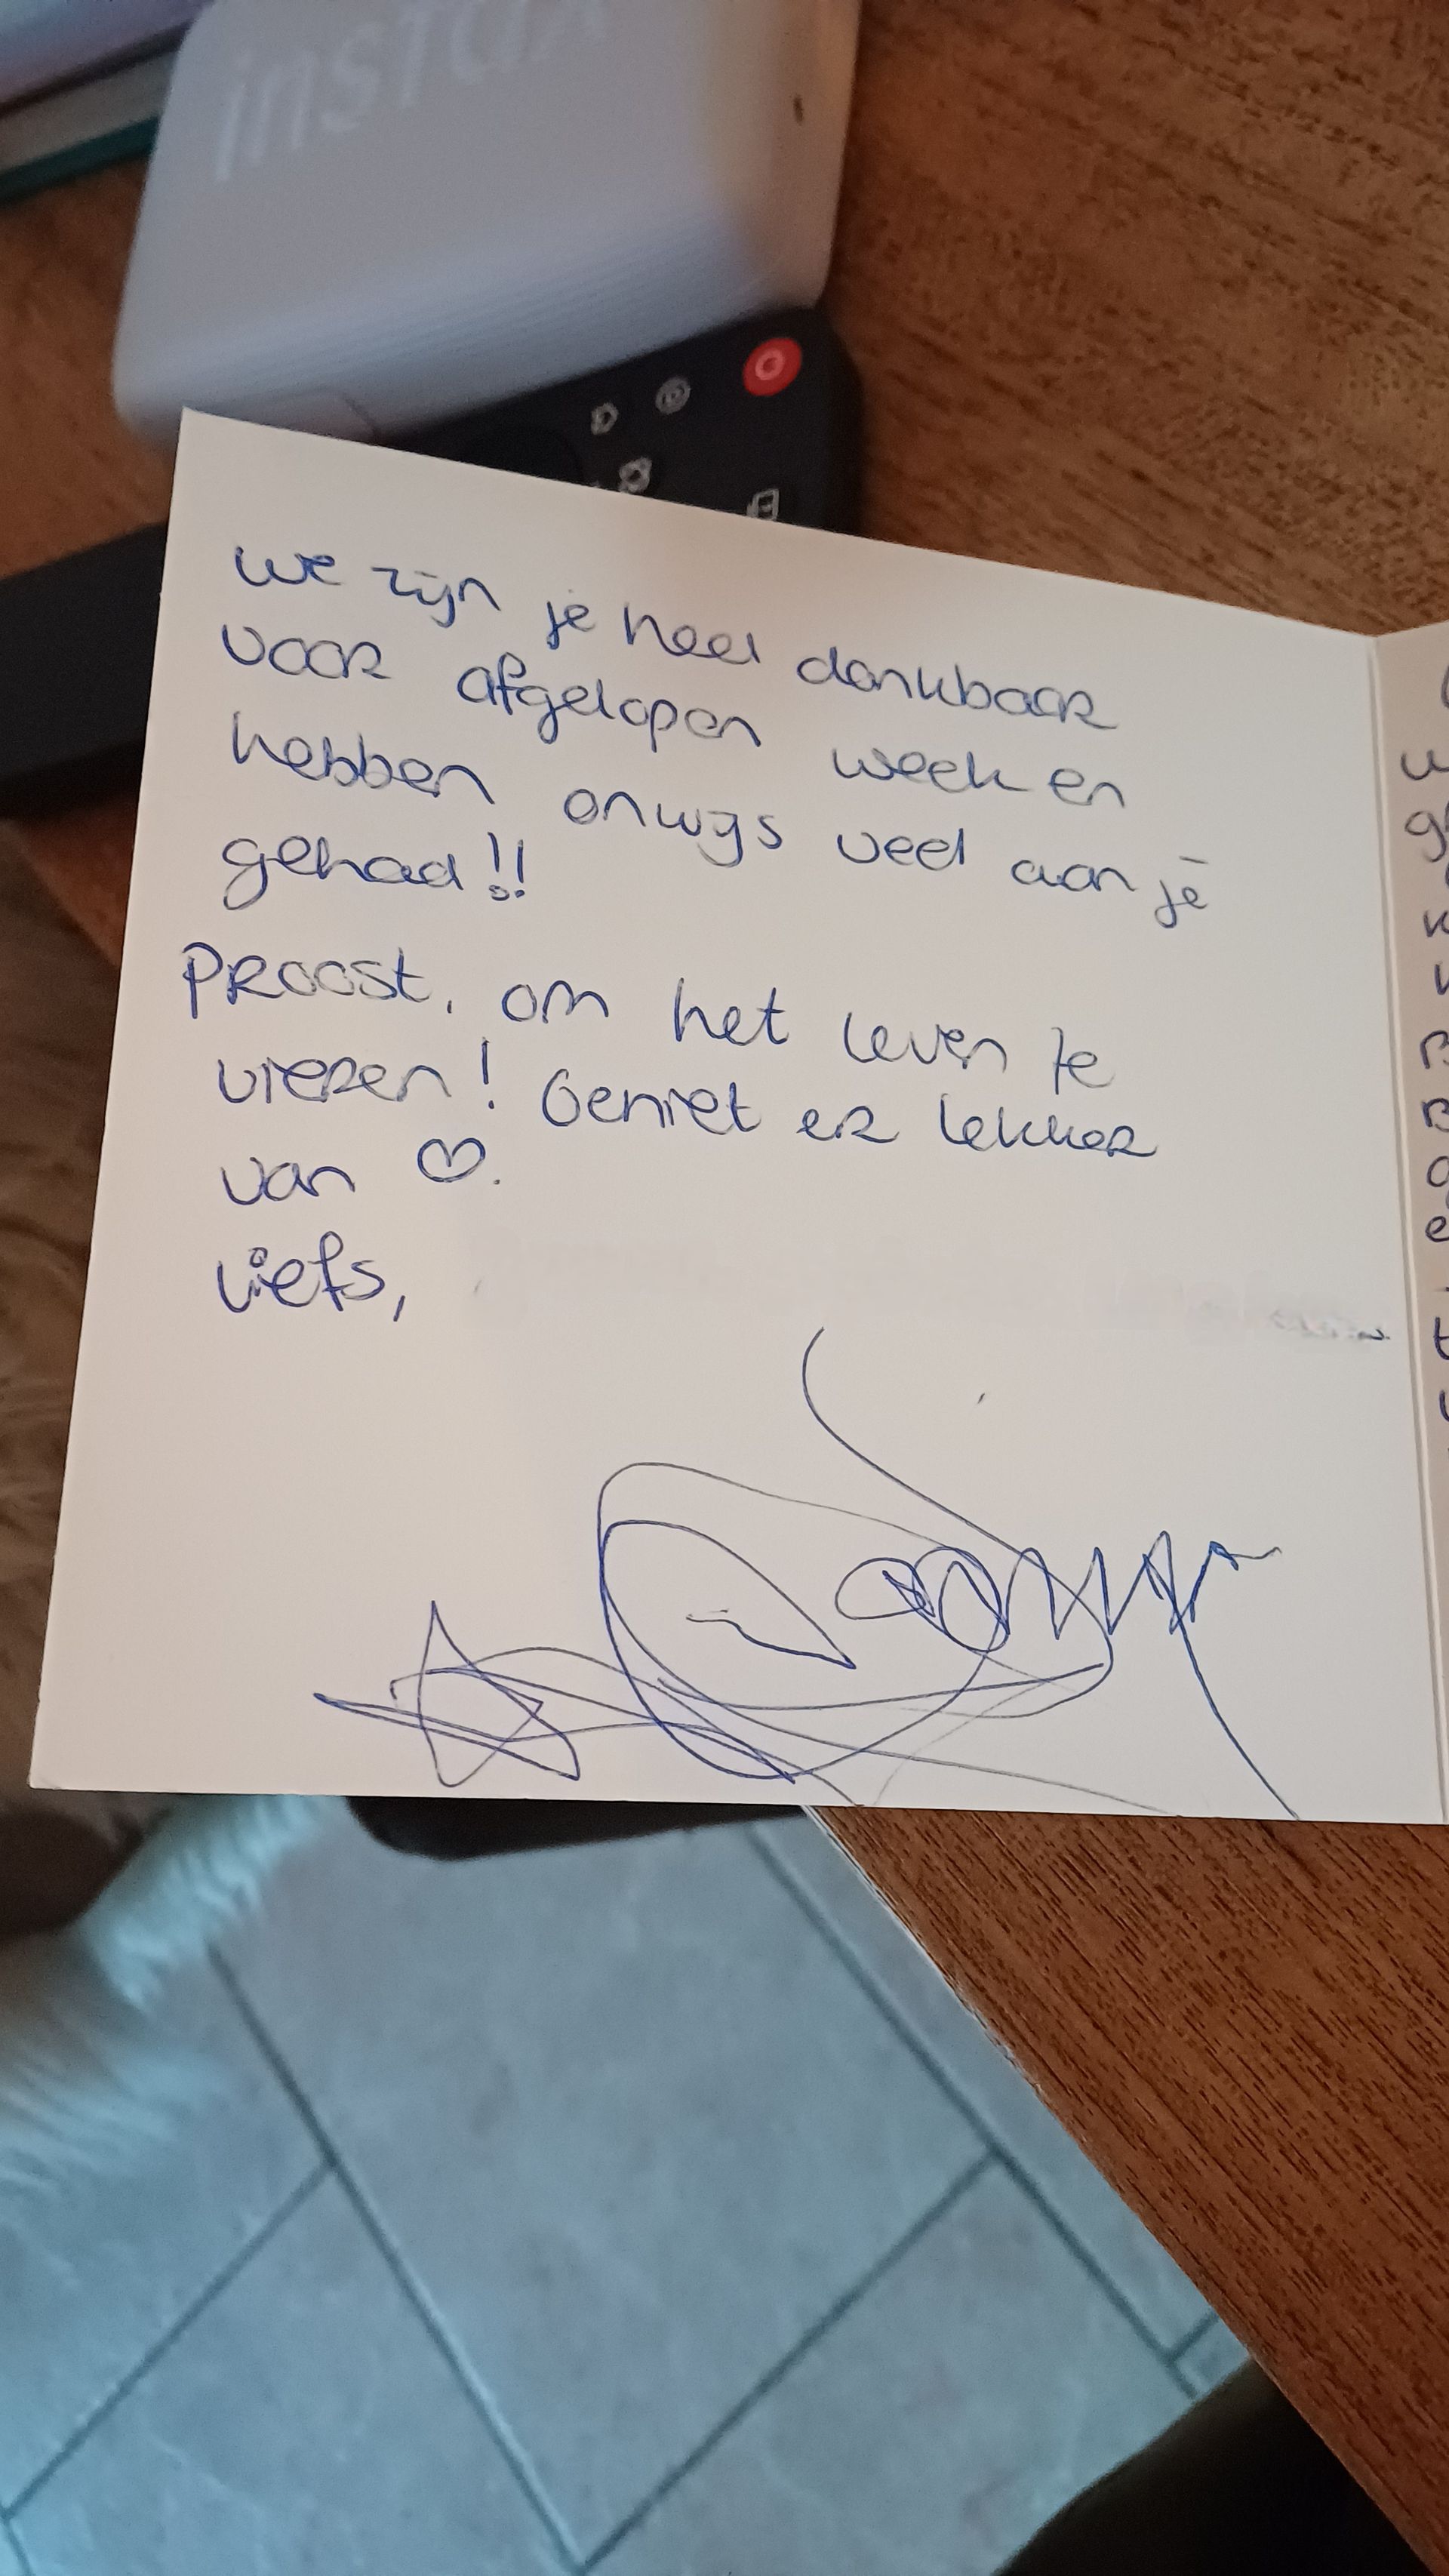 instax
we zijn je heel dankbaar
voor afgelopen week en
hebben onwijs veel aan je
gehad!!
PROOST, om het leven te
vieren! Geniet er lekker
van ♡.
liefs,